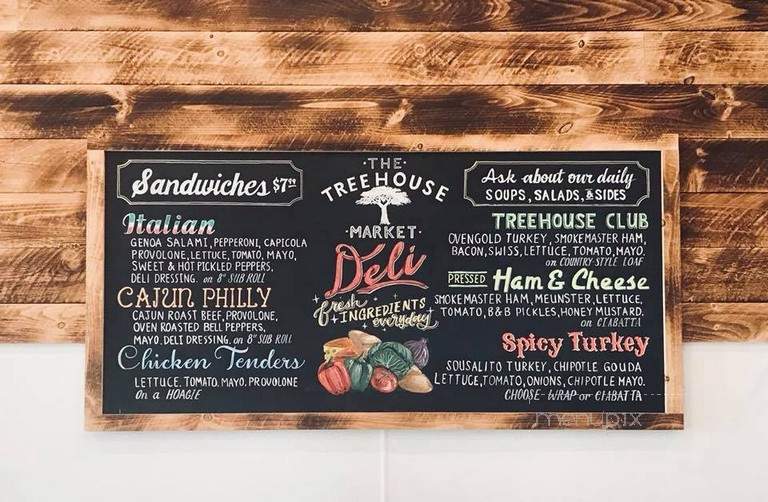 Sandwiches $7.99
Italian
GENOA SALAMI, PEPPERONI, CAPICOLA
PROVOLONE, LETTUCE, TOMATO, MAYO,
SWEET & HOT PICKLED PEPPERS,
DELI DRESSING. on 8" SUB ROLL
CAJUN PHILLY
CAJUN ROAST BEEF, PROVOLONE,
OVEN ROASTED BELL PEPPERS,
MAYO, DELI DRESSING. on 8" SUB ROLL
Chicken Tenders
LETTUCE, TOMATO, MAYO, PROVOLONE
On a HOAGIE
·THE·
TREEHOUSE
·MARKET·
Deli
fresh
INGREDIENTS
everyday
Ask about our daily
SOUPS, SALADS, & SIDES
TREEHOUSE CLUB
OVENGOLD TURKEY, SMOKEMASTER HAM,
BACON, SWISS, LETTUCE, TOMATO, MAYO.
on COUNTRY-STYLE LOAF
PRESSED Ham & Cheese
SMOKEMASTER HAM, MEUNSTER, LETTUCE,
TOMATO, B&B PICKLES, HONEY MUSTARD.
on CIABATTA
Spicy Turkey
SOUSALITO TURKEY, CHIPOTLE GOUDA
LETTUCE, TOMATO, ONIONS, CHIPOTLE MAYO.
CHOOSE- WRAP or CIABATTA
menupix